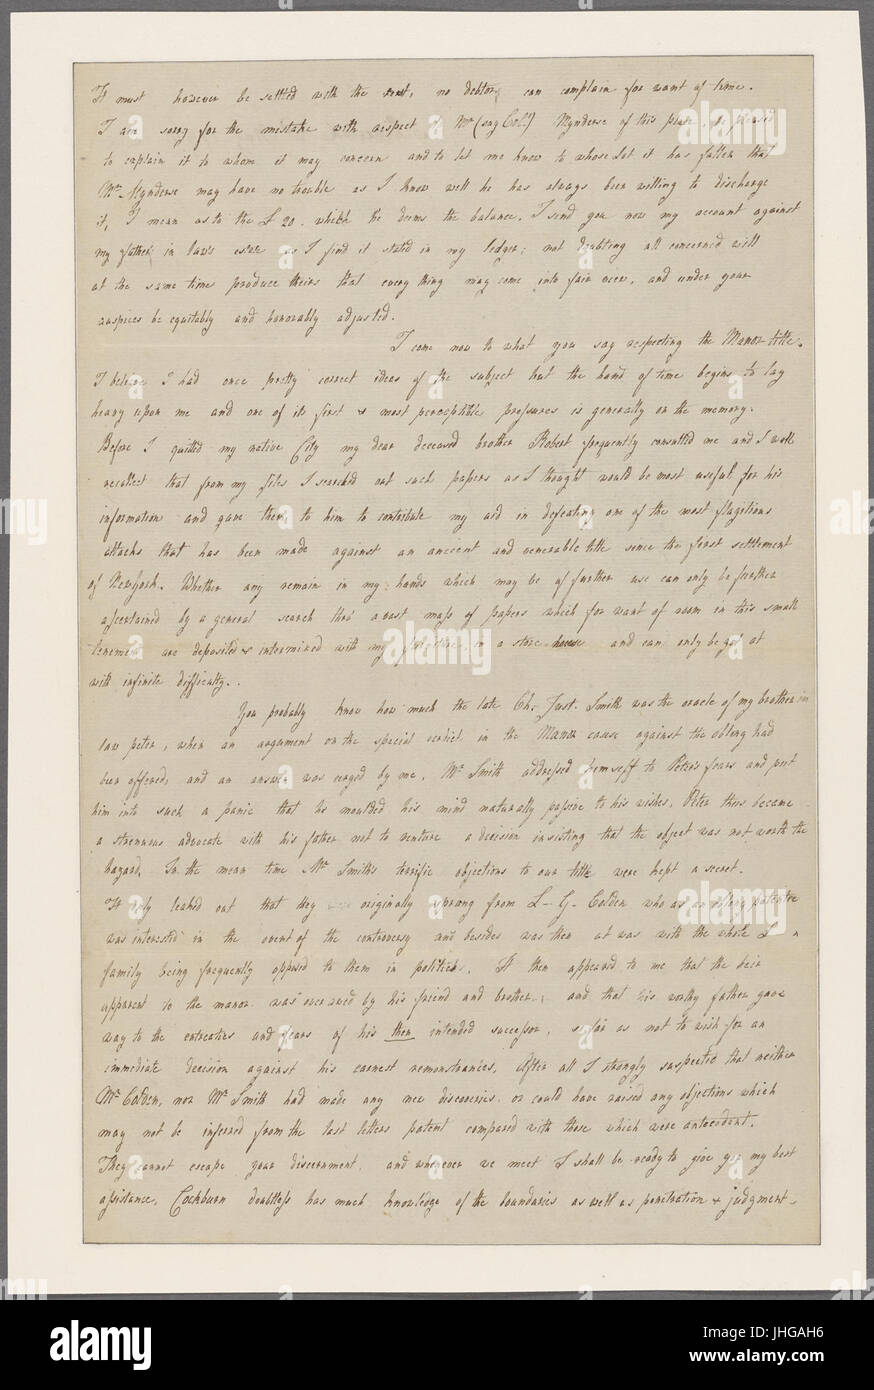 It must however be settled with the rest, no debtor can complain for want of time.
I am sorry for the mistake with respect to Mr (say Col.) Mynderse of this place, be pleased
to explain it to whom it may concern and to let me know to whose Lot it has fallen that
Mr Mynderse may have no trouble as I know well he has always been willing to discharge
it, I mean as to the £ 20. which he deems the balance. I send you now my account against
my father in law's estate as I find it stated in my ledger; not doubting all concerned will
at the same time produce theirs that every thing may come into fair view, and under your
auspices be equitably and honorably adjusted.
I come now to what you say respecting the Manor title.
I believe I had once pretty correct ideas of the subject but the hand of time begins to lay
heavy upon me and one of its first & most perceptible pressures is generally on the memory.
Before I quitted my native City my dear deceased brother Robert frequently consulted me and I well
recollect that from my files I searched out such papers as I thought would be most useful for his
information and gave them to him to contribute my aid in defeating one of the most flagitious
attacks that has been made against an ancient and venerable title since the first settlement
of New York. Whether any remain in my hands which may be of further use can only be further
ascertained by a general search thro' a vast mass of papers which for want of room in this small
tenement are deposited & intermixed with my furniture in a store house and can only be got at
with infinite difficulty.
You probably know how much the late Ch. Just. Smith was the oracle of my brother in
law peter, when an argument on the special verdict in the Manor cause against the oblong had
been offered, and an answer was urged by me, Mr Smith addressed himself to Peter's fears and put
him into such a panic that he moulded his mind naturally passive to his wishes, Peter thus became
a strenuous advocate with his father not to venture a decision insisting that the object was not worth the
hazard. In the mean time Mr Smith's terrific objections to our title were kept a secret.
It only leaked out that they originally sprang from L– G– Colden who as an oblong patentee
was interested in the event of the controversy and besides was then at war with the whole L n
family being frequently opposed to them in politicks. It then appeared to me that the heir
apparent to the manor was overawed by his friend and brother; and that his worthy father gave
way to the entreaties and fears of his then intended successor, so far as not to wish for an
immediate decision against his earnest remonstrances, After all I strongly suspected that neither
Mr Colden, nor Mr Smith had made any new discoveries or could have raised any objections which
may not be inferred from the last letters patent compared with those which were antecedent.
They cannot escape your discernment, and whenever we meet I shall be ready to give you my best
assistance. Cockburn doubtless has much knowledge of the boundaries as well as penetration & judgment–
alamy
alamy stock photo
JHGAH6
www.alamy.com